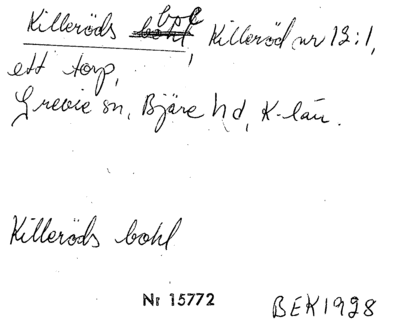 Killeröds bol, Killeröd nr 12:1,
ett torp,
Grevie sn, Bjäre hd, K-län.
Killeröds bohl
Nr 15772
BEK1928